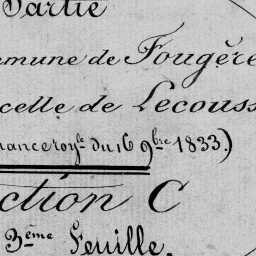 Partie
mmune de Fougère
celle de Lecouss
nance roy.le du 16 9bre 1833.)
ction C
3ème Feuille.